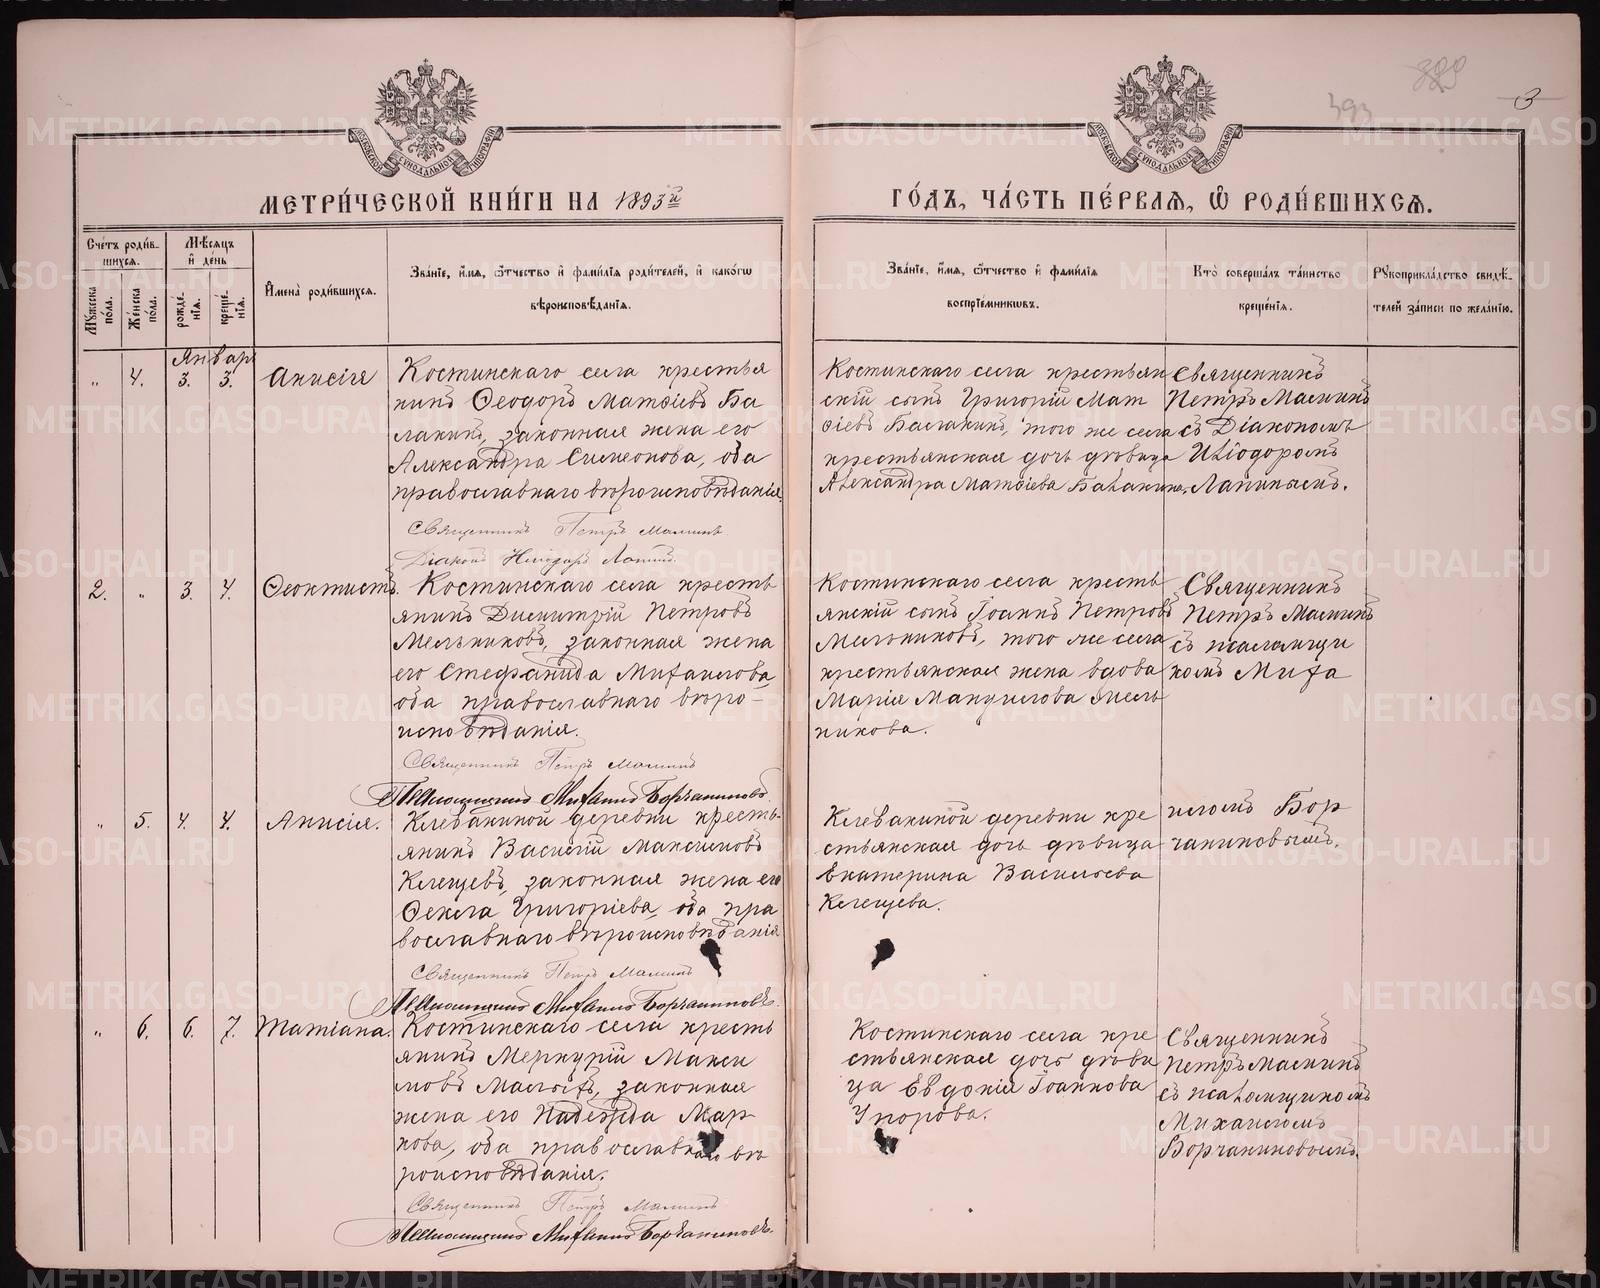 МЕТРИ́ЧЕСКОЙ КНИ́ГИ НА 1893й
ГО́ДЪ, ЧА́СТЬ ПЕ́РВАЯ, Ѡ РОДИ́ВШИХСЯ.
389
393
3
Сче́тъ роди́в-
шихся.
Мꙋ́жеска по́ла.
Же́нска по́ла.
Мѣ́сяцъ и де́нь
рожде́-нія.
креще́-нія.
Имена̀ роди́вшихся.
Зва́ніе, и́мя, ѻ́тчество и фами́лія роди́телей, и како́гѡ
вѣроисповѣ́данія.
Зва́ніе, и́мя, ѻ́тчество и фами́лія
воспріе́мникѡвъ.
Кто̀ соверша́лъ та́инство
креще́нія.
Рꙋкоприкла́дство свидѣ́-
телей за́писи по жела́нію.
Январь
„ 4. 3. 3. Анисія
Костинскаго села крестья
нинъ Ѳеодоръ Матѳіевъ Ба
лакинъ, законная жена его
Александра Симеонова, оба
православнаго вѣроисповѣданія.
Священникъ Петръ Малминъ
Діаконъ Иліодоръ Лапинъ.
Костинскаго села крестьян
скій сынъ Григорій Мат
ѳіевъ Балакинъ, того же села
крестьянская дочь дѣвица
Александра Матѳіева Балакина.
Священникъ
Петръ Малминъ
съ Діакономъ
Иліодоромъ
Лапинымъ.
2. „ 3. 4. Ѳеоктистъ.
Костинскаго села кресть
янинъ Димитрій Петровъ
Мельниковъ, законная жена
его Стефанида Михаилова,
оба православнаго вѣро-
исповѣданія.
Священникъ Петръ Малминъ
Псаломщикъ Михаилъ Борчаниновъ.
Костинскаго села кресть
янскій сынъ Іоаннъ Петровъ
Мельниковъ, того же села
крестьянская жена вдова
Марія Мануилова Мель
никова.
Священникъ
Петръ Малминъ
съ псаломщи
комъ Миха
иломъ Бор
чаниновымъ.
„ 5. 4. 4. Анисія.
Клевакиной деревни кресть-
янинъ Василій Максимовъ
Клещевъ, законная жена его
Ѳекла Григоріева, оба пра
вославнаго вѣроисповѣданія
Священникъ Петръ Малминъ
Псаломщикъ Михаилъ Борчаниновъ.
Клевакиной деревни кре
стьянская дочь дѣвица
Екатерина Васильева
Клещева.
„ 6. 6. 7. Татіана.
Костинскаго села кресть
янинъ Меркурій Макси
мовъ Малыхъ, законная
жена его Надежда Мар-
кова, оба православнаго вѣ
роисповѣданія.
Священникъ Петръ Малминъ
Псаломщикъ Михаилъ Борчаниновъ.
Костинскаго села кре
стьянская дочь дѣви
ца Евдокія Іоаннова
Упорова.
Священникъ
Петръ Малминъ
съ псаломщикомъ
Михаиломъ
Борчаниновымъ.